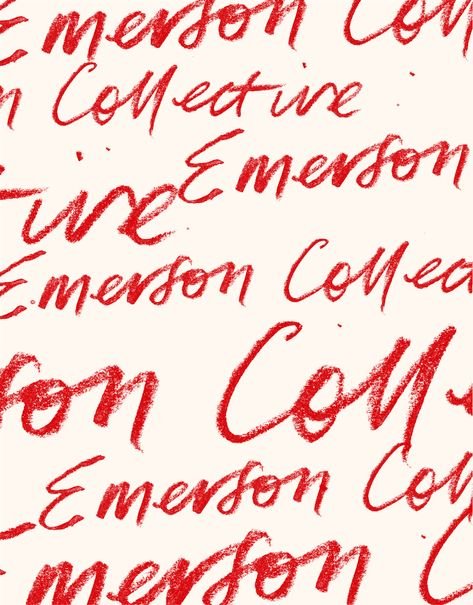 Emerson Coll
n Collective
Emerson
tive
Emerson Collec
son Coll
Emerson Coll
Emerson C